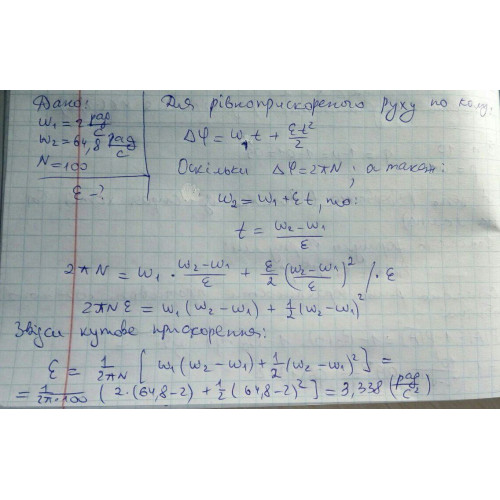 Дано:
ω₁ = 2 рад/с
ω₂ = 64,8 рад/с
N = 100
ε - ?
Для рівноприскореного руху по колу:
Δφ = ω₁t + εt²/2
Оскільки Δφ = 2πN; а також:
ω₂ = ω₁ + εt, то:
t = (ω₂ - ω₁)/ε
2πN = ω₁ · (ω₂ - ω₁)/ε + ε/2 ((ω₂ - ω₁)/ε)² / · ε
2πNε = ω₁(ω₂ - ω₁) + 1/2 (ω₂ - ω₁)²
Звідси кутове прискорення:
ε = 1/2πN [ω₁(ω₂ - ω₁) + 1/2 (ω₂ - ω₁)²] =
= 1/2π·100 (2·(64,8 - 2) + 1/2 (64,8 - 2)²] = 3,338 (рад/с²)